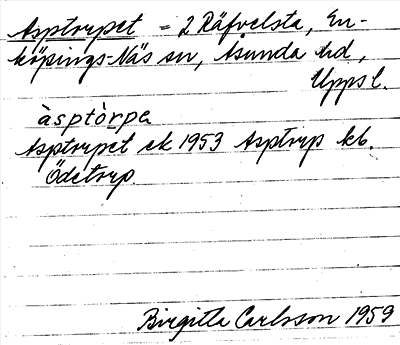 Asptorpet = 2 Räfvelsta, En-
köpings-Näs sn, Åsunda hd,
Upps l.
àsptòrpa
Asptorpet ek 1953 Asptorp kb.
Ödetorp.
Birgitta Carlsson 1959